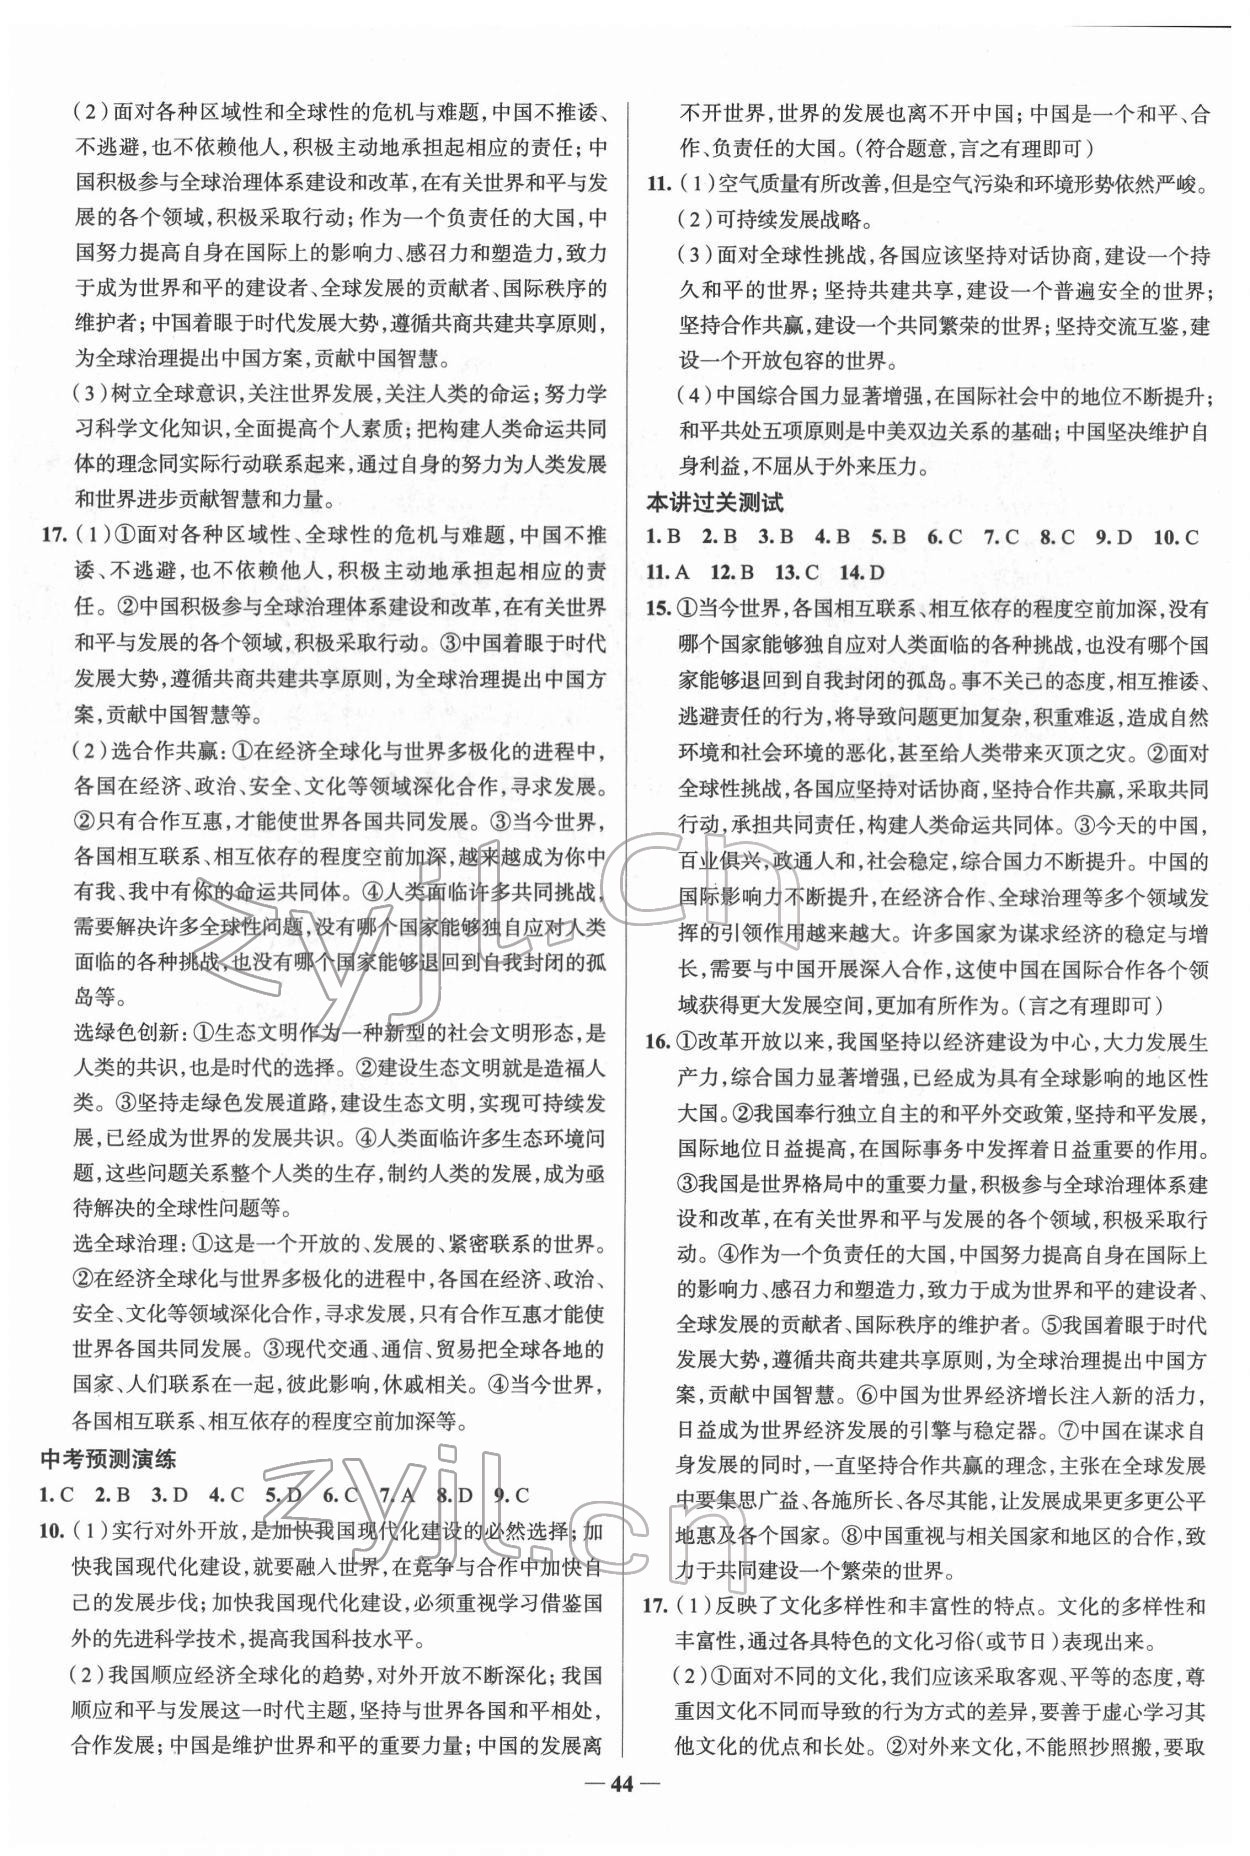 (2)面对各种区域性和全球性的危机与难题,中国不推诿、
不逃避,也不依赖他人,积极主动地承担起相应的责任;中
国积极参与全球治理体系建设和改革,在有关世界和平与发
展的各个领域,积极采取行动;作为一个负责任的大国,中
国努力提高自身在国际上的影响力、感召力和塑造力,致力
于成为世界和平的建设者、全球发展的贡献者、国际秩序的
维护者;中国着眼于时代发展大势,遵循共商共建共享原则,
为全球治理提出中国方案,贡献中国智慧。
(3)树立全球意识,关注世界发展,关注人类的命运;努力学
习科学文化知识,全面提高个人素质;把构建人类命运共同
体的理念同实际行动联系起来,通过自身的努力为人类发展
和世界进步贡献智慧和力量。
17.(1)①面对各种区域性、全球性的危机与难题,中国不推
诿、不逃避,也不依赖他人,积极主动地承担起相应的责
任。②中国积极参与全球治理体系建设和改革,在有关世界
和平与发展的各个领域,积极采取行动。③中国着眼于时代
发展大势,遵循共商共建共享原则,为全球治理提出中国方
案,贡献中国智慧等。
(2)选合作共赢:①在经济全球化与世界多极化的进程中,
各国在经济、政治、安全、文化等领域深化合作,寻求发展。
②只有合作互惠,才能使世界各国共同发展。③当今世界,
各国相互联系、相互依存的程度空前加深,越来越成为你中
有我、我中有你的命运共同体。④人类面临许多共同挑战,
需要解决许多全球性问题,没有哪个国家能够独自应对人类
面临的各种挑战,也没有哪个国家能够退回到自我封闭的孤
岛等。
选绿色创新:①生态文明作为一种新型的社会文明形态,是
人类的共识,也是时代的选择。②建设生态文明就是造福人
类。③坚持走绿色发展道路,建设生态文明,实现可持续发
展,已经成为世界的发展共识。④人类面临许多生态环境问
题,这些问题关系整个人类的生存,制约人类的发展,成为亟
待解决的全球性问题等。
选全球治理:①这是一个开放的、发展的、紧密联系的世界。
②在经济全球化与世界多极化的进程中,各国在经济、政治、
安全、文化等领域深化合作,寻求发展,只有合作互惠才能使
世界各国共同发展。③现代交通、通信、贸易把全球各地的
国家、人们联系在一起,彼此影响,休戚相关。④当今世界,
各国相互联系、相互依存的程度空前加深等。
中考预测演练
1.C 2.B 3.D 4.C 5.D 6.C 7.A 8.D 9.C
10.(1)实行对外开放,是加快我国现代化建设的必然选择;加
快我国现代化建设,就要融入世界,在竞争与合作中加快自
己的发展步伐;加快我国现代化建设,必须重视学习借鉴国
外的先进科学技术,提高我国科技水平。
(2)我国顺应经济全球化的趋势,对外开放不断深化;我国
顺应和平与发展这一时代主题,坚持与世界各国和平相处,
合作发展;中国是维护世界和平的重要力量;中国的发展离
不开世界,世界的发展也离不开中国;中国是一个和平、合
作、负责任的大国。(符合题意,言之有理即可)
11.(1)空气质量有所改善,但是空气污染和环境形势依然严峻。
(2)可持续发展战略。
(3)面对全球性挑战,各国应该坚持对话协商,建设一个持
久和平的世界;坚持共建共享,建设一个普遍安全的世界;
坚持合作共赢,建设一个共同繁荣的世界;坚持交流互鉴,建
设一个开放包容的世界。
(4)中国综合国力显著增强,在国际社会中的地位不断提升;
和平共处五项原则是中美双边关系的基础;中国坚决维护自
身利益,不屈从于外来压力。
本讲过关测试
1.B 2.B 3.B 4.B 5.B 6.C 7.C 8.C 9.D 10.C
11.A 12.B 13.C 14.D
15.①当今世界,各国相互联系、相互依存的程度空前加深,没有
哪个国家能够独自应对人类面临的各种挑战,也没有哪个国
家能够退回到自我封闭的孤岛。事不关己的态度,相互推诿、
逃避责任的行为,将导致问题更加复杂,积重难返,造成自然
环境和社会环境的恶化,甚至给人类带来灭顶之灾。②面对
全球性挑战,各国应坚持对话协商,坚持合作共赢,采取共同
行动,承担共同责任,构建人类命运共同体。③今天的中国,
百业俱兴,政通人和,社会稳定,综合国力不断提升。中国的
国际影响力不断提升,在经济合作、全球治理等多个领域发
挥的引领作用越来越大。许多国家为谋求经济的稳定与增
长,需要与中国开展深入合作,这使中国在国际合作各个领
域获得更大发展空间,更加有所作为。(言之有理即可)
16.①改革开放以来,我国坚持以经济建设为中心,大力发展生
产力,综合国力显著增强,已经成为具有全球影响的地区性
大国。②我国奉行独立自主的和平外交政策,坚持和平发展,
国际地位日益提高,在国际事务中发挥着日益重要的作用。
③我国是世界格局中的重要力量,积极参与全球治理体系建
设和改革,在有关世界和平与发展的各个领域,积极采取行
动。④作为一个负责任的大国,中国努力提高自身在国际上
的影响力、感召力和塑造力,致力于成为世界和平的建设者、
全球发展的贡献者、国际秩序的维护者。⑤我国着眼于时代
发展大势,遵循共商共建共享原则,为全球治理提出中国方
案,贡献中国智慧。⑥中国为世界经济增长注入新的活力,
日益成为世界经济发展的引擎与稳定器。⑦中国在谋求自
身发展的同时,一直坚持合作共赢的理念,主张在全球发展
中要集思广益、各施所长、各尽其能,让发展成果更多更公平
地惠及各个国家。⑧中国重视与相关国家和地区的合作,致
力于共同建设一个繁荣的世界。
17.(1)反映了文化多样性和丰富性的特点。文化的多样性和
丰富性,通过各具特色的文化习俗(或节日)表现出来。
(2)①面对不同的文化,我们应该采取客观、平等的态度,尊
重因文化不同而导致的行为方式的差异,要善于虚心学习其
他文化的优点和长处。②对外来文化,不能照抄照搬,要取
— 44 —
zyjl.cn
zyjl.cn